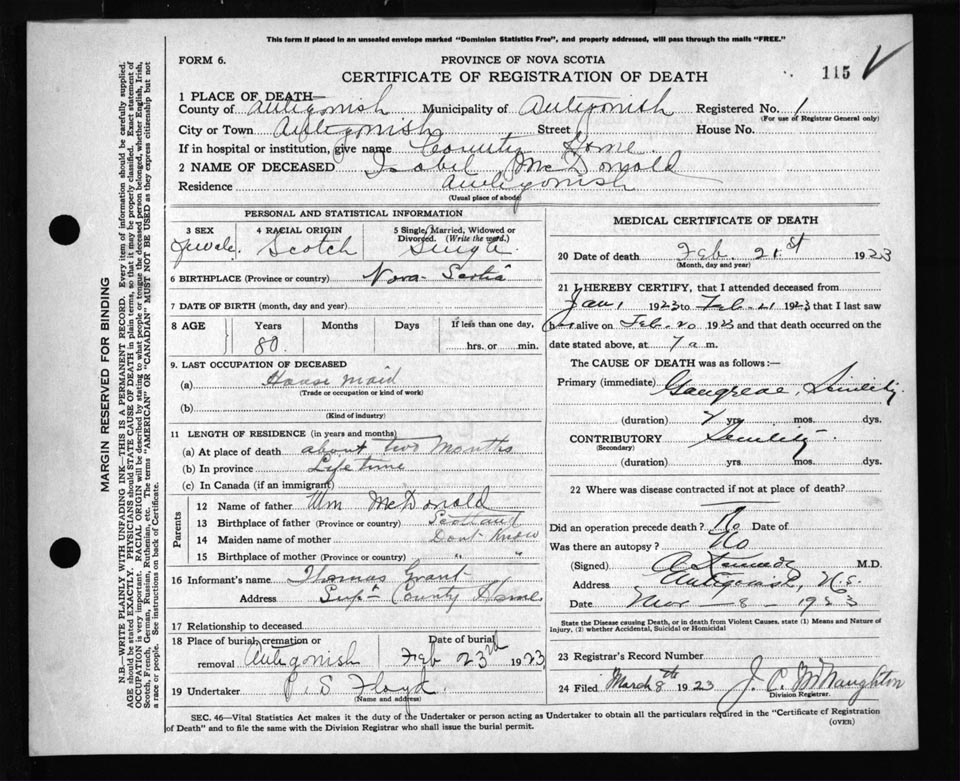 This form if placed in an unsealed envelope marked "Dominion Statistics Free", and properly addressed, will pass through the mails "FREE."
FORM 6.
PROVINCE OF NOVA SCOTIA
CERTIFICATE OF REGISTRATION OF DEATH
115
1 PLACE OF DEATH—
County of Antigonish Municipality of Antigonish Registered No. 1
(For use of Registrar General only)
City or Town Antigonish Street House No.
If in hospital or institution, give name County Home.
2 NAME OF DECEASED Isabel McDonald
Residence Antigonish
(Usual place of abode)
PERSONAL AND STATISTICAL INFORMATION
3 SEX 4 RACIAL ORIGIN 5 Single, Married, Widowed or Divorced. (Write the word.)
Female. Scotch Single
6 BIRTHPLACE (Province or country) Nova Scotia
7 DATE OF BIRTH (month, day and year)
8 AGE Years Months Days If less than one day,
80. hrs. or min.
9. LAST OCCUPATION OF DECEASED
(a) House maid
(Trade or occupation or kind of work)
(b)
(Kind of industry)
11 LENGTH OF RESIDENCE (in years and months)
(a) At place of death about two months
(b) In province Life time
(c) In Canada (if an immigrant)
Parents
12 Name of father Wm McDonald
13 Birthplace of father (Province or country) Scotland
14 Maiden name of mother Dont Know
15 Birthplace of mother (Province or country) " "
16 Informant's name Thomas Grant
Address Supt County Home
17 Relationship to deceased
18 Place of burial, cremation or removal Antigonish Date of burial Feb 23rd 1923
19 Undertaker P. S Floyd.
(Name and address)
MEDICAL CERTIFICATE OF DEATH
20 Date of death Feb. 21st 1923
(Month, day and year)
21 I HEREBY CERTIFY, that I attended deceased from
Jan 1 1923 to Feb. 21 1923 that I last saw
her alive on Feb. 20 1923 and that death occurred on the
date stated above, at 7 a m.
The CAUSE OF DEATH was as follows:
Primary (immediate) Gangrene, Senility
(duration) yrs. mos. dys.
CONTRIBUTORY Senility.
(Secondary)
(duration) yrs. mos. dys.
22 Where was disease contracted if not at place of death?
Did an operation precede death? No Date of
Was there an autopsy? No
(Signed) M.D.
Address Antigonish, N.S.
Date Mar - 8 - 1923
State the Disease causing Death, or in death from Violent Causes, state (1) Means and Nature of Injury, (2) whether Accidental, Suicidal or Homicidal
23 Registrar's Record Number
24 Filed March 8th 1923 J. C. McNaughton
Division Registrar.
SEC. 46—Vital Statistics Act makes it the duty of the Undertaker or person acting as Undertaker to obtain all the particulars required in the "Certificate of Registration
of Death" and to file the same with the Division Registrar who shall issue the burial permit.
(OVER)
MARGIN RESERVED FOR BINDING
N.B.—WRITE PLAINLY WITH UNFADING INK—THIS IS A PERMANENT RECORD. Every item of information should be carefully supplied.
AGE should be stated EXACTLY. PHYSICIANS should STATE CAUSE OF DEATH in plain terms, so that it may be properly classified. Exact statement of
OCCUPATION is very important. RACIAL ORIGIN will be described by stating to what people or tongue the deceased person belonged, whether English, Irish,
Scotch, French, German, Russian, Ruthenian, etc. The terms "AMERICAN" OR "CANADIAN" MUST NOT BE USED as they express citizenship but not
a race or people. See instructions on back of Certificate.